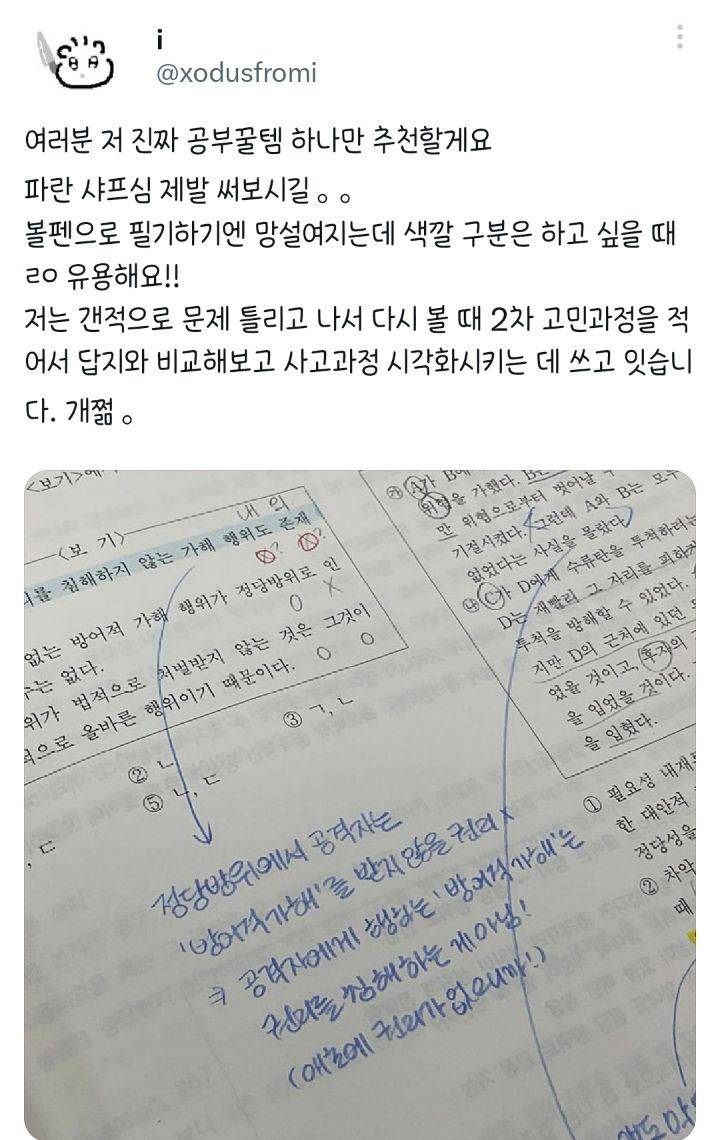 i
@xodusfromi
여러분 저 진짜 공부꿀템 하나만 추천할게요
파란 샤프심 제발 써보시길 。。
볼펜으로 필기하기엔 망설여지는데 색깔 구분은 하고 싶을 때
ㄹㅇ 유용해요!!
저는 갠적으로 문제 틀리고 나서 다시 볼 때 2차 고민과정을 적
어서 답지와 비교해보고 사고과정 시각화시키는 데 쓰고 잇습니
다. 개쩖 。
<보기>에
<보 기>
내 의
를 침해하지 않는 가해 행위도 존재
없는 방어적 가해 행위가 정당방위로 인
수는 없다.
위가 법적으로 처벌받지 않는 것은 그것이
적으로 올바른 행위이기 때문이다.
② ㄴ
③ ㄱ, ㄴ
⑤ ㄴ, ㄷ
, ㄷ
정당방위에서 공격자는
'방어적 가해'를 받지 않을 권리 x
공격자에게 행하는 '방어적 가해'는
권리를 침해하는 게 아님!
(애초에 권리가 없으니까!)
㉮ A가 B에
위협을 가했다. B는
만 위협으로부터 벗어날 수
기절시켰다. 그런데 A와 B는 모두
없었다는 사실을 몰랐다.
㉯ C가 D에게 수류탄을 투척하려는
D는 재빨리 그 자리를 피하
투척을 방해할 수 있었다.
지만 D의 근처에 있던
었을 것이고, 후자의
을 입었을 것이다.
을 입혔다.
① 필요성 내재
한 대안적
정당성을
② 차악
때